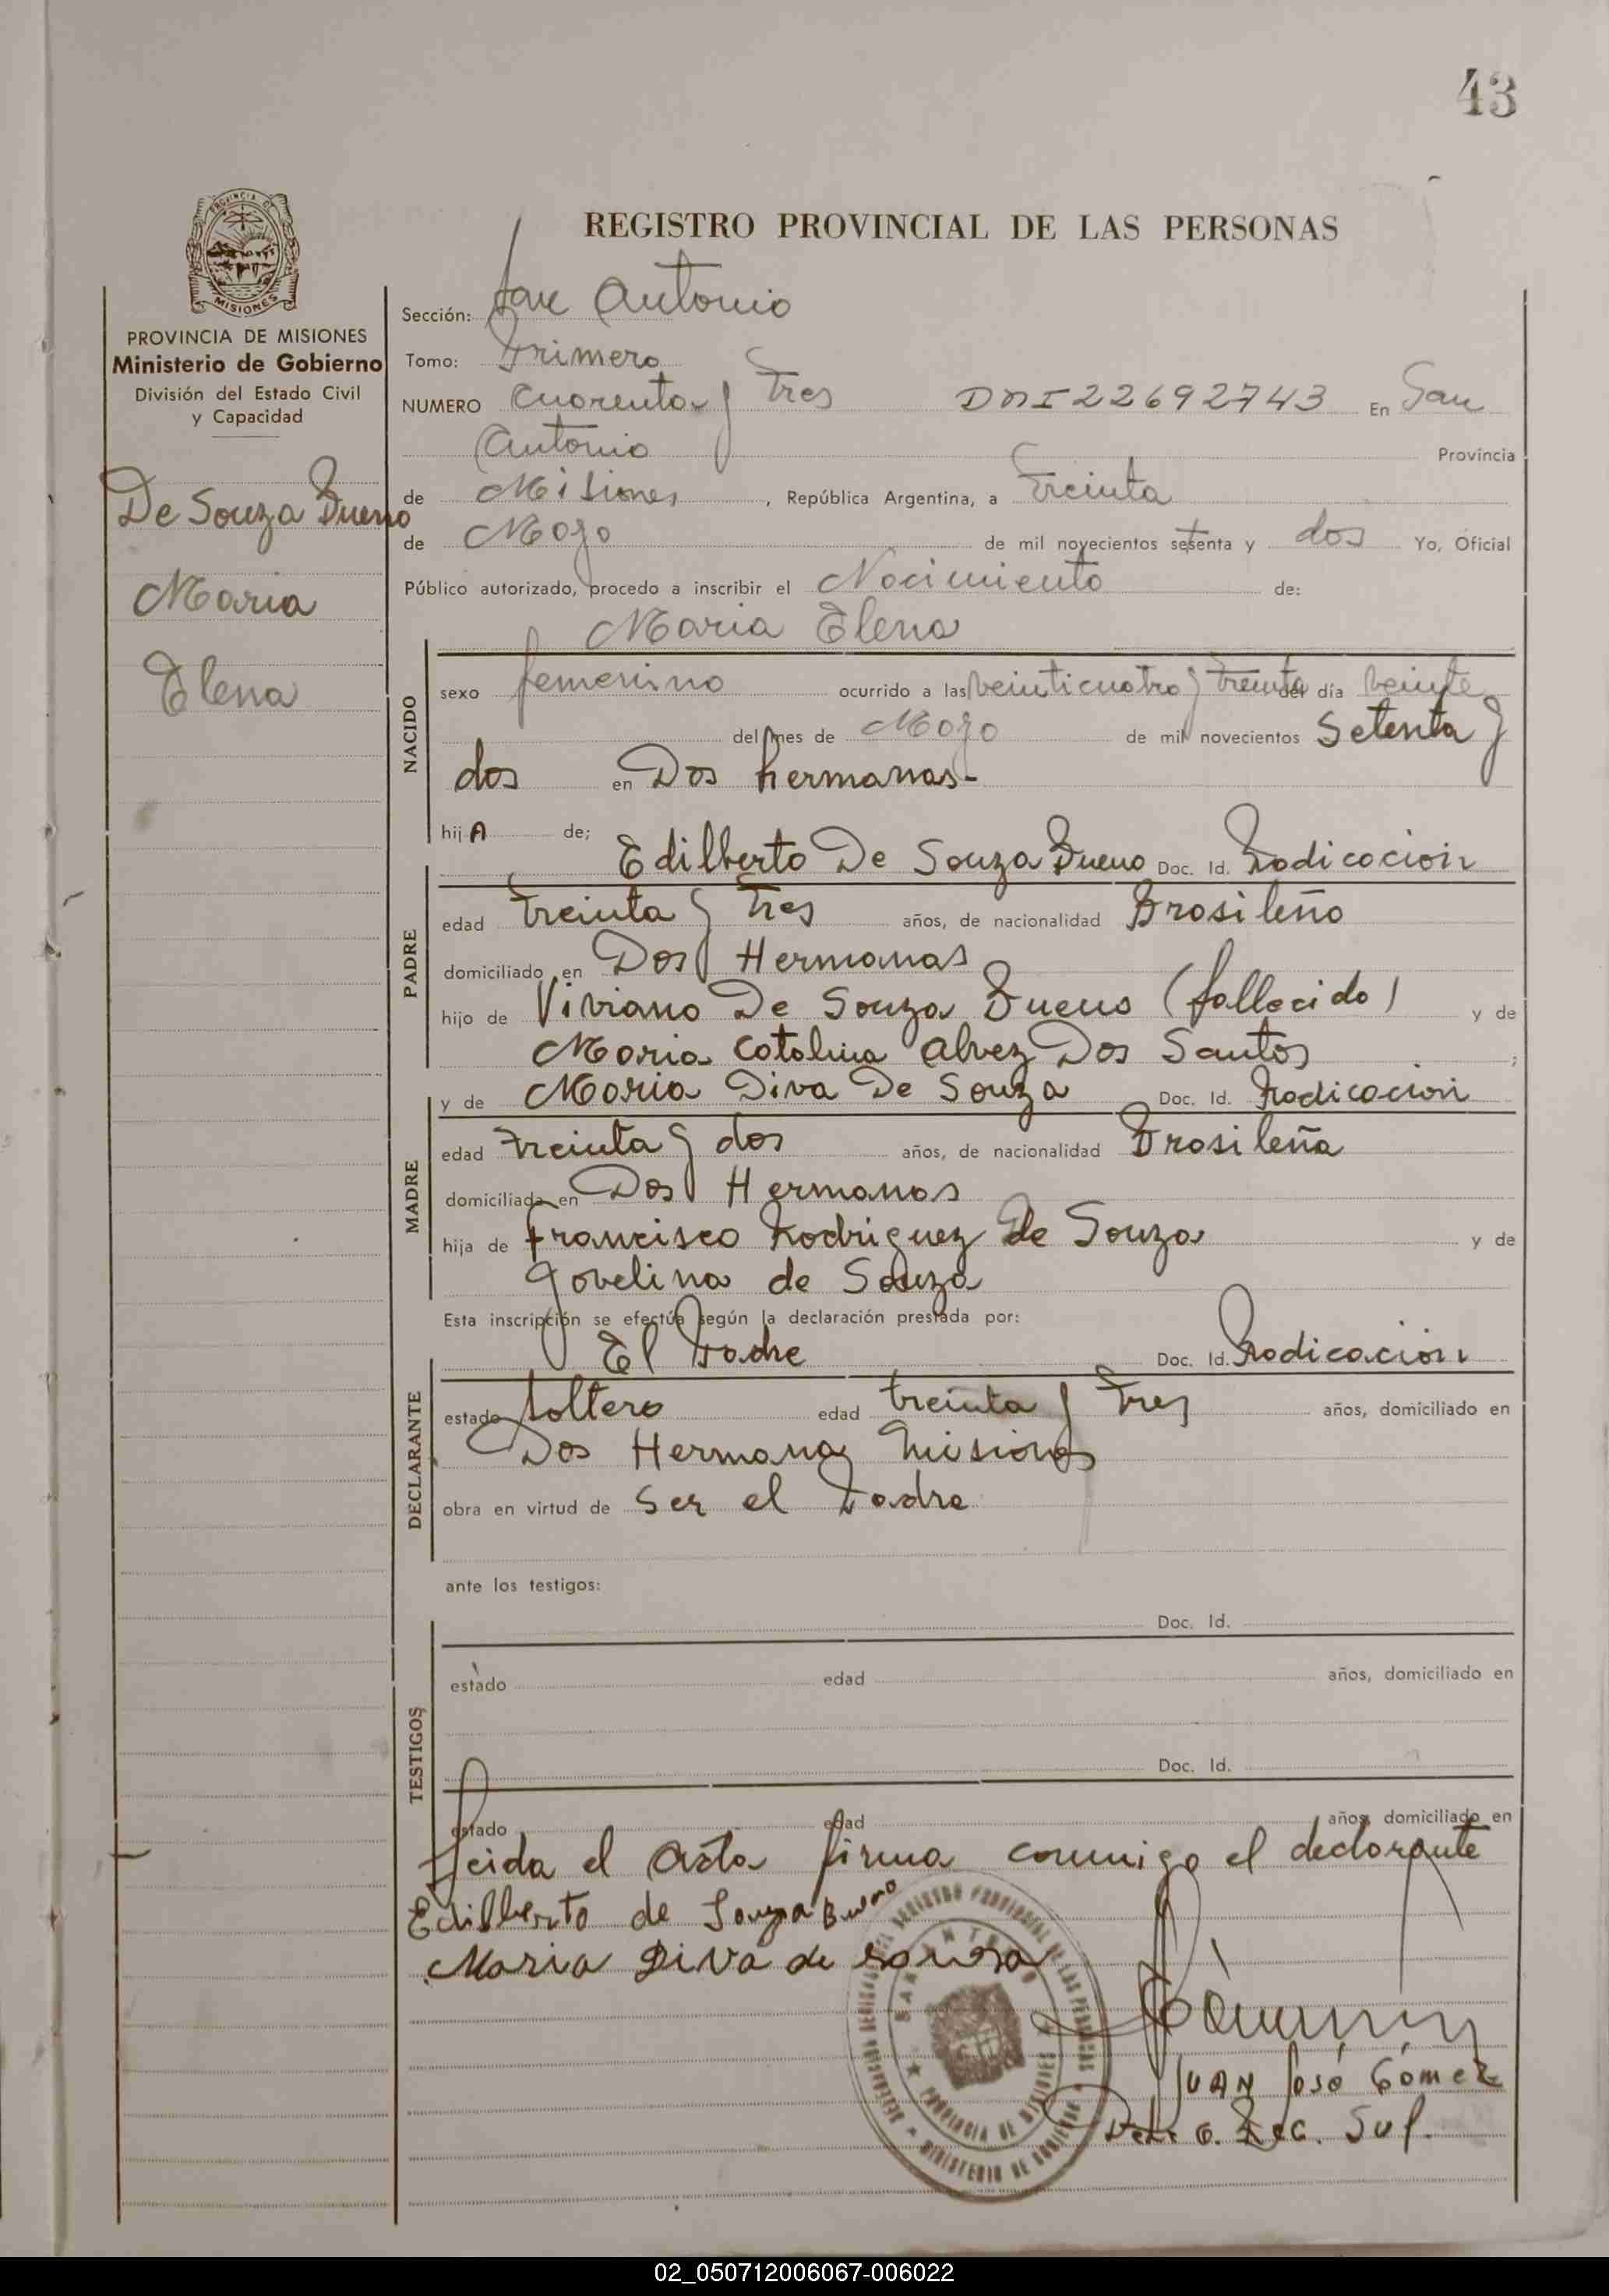 43
REGISTRO PROVINCIAL DE LAS PERSONAS
PROVINCIA DE
MISIONES
PROVINCIA DE MISIONES
Ministerio de Gobierno
División del Estado Civil
y Capacidad
De Souza Bueno
Maria
Elena
Sección: San Antonio
Tomo: Primero
NUMERO Cuarenta y tres DNI 22692743 En San
Antonio Provincia
de Misiones, República Argentina, a treinta
de Mayo de mil novecientos setenta y dos Yo, Oficial
Público autorizado, procedo a inscribir el Nacimiento de:
Maria Elena
NACIDO
sexo femenino ocurrido a las veinticuatro y treinta del día veinte
del mes de Mayo de mil novecientos Setenta y
dos en Dos hermanas-
hijA de;
Edilberto De Souza Bueno Doc. Id. Radicacion
PADRE
edad treinta y tres años, de nacionalidad Brasileño
domiciliado en Dos Hermanas
hijo de Viviano De Souza Bueno (fallecido) y de
Maria Catalina Alvez Dos Santos ;
y de Maria Diva De Souza Doc. Id. Radicacion
MADRE
edad treinta y dos años, de nacionalidad Brasileña
domiciliada en Dos Hermanas
hija de Francisco Rodriguez de Souza y de
Jovelina de Souza
Esta inscripción se efectúa según la declaración prestada por:
El Padre Doc. Id. Radicacion
DECLARANTE
estado soltero edad treinta y tres años, domiciliado en
Dos Hermanas Misiones
obra en virtud de ser el Padre
ante los testigos:
Doc. Id.
TESTIGOS
estado edad años, domiciliado en
Doc. Id.
estado edad años, domiciliado en
Leida el Acta firma conmigo el declarante
Edilberto de Souza Bueno
Maria Diva de sousa
REGISTRO PROVINCIAL DE LAS PERSONAS
SAN ANTONIO
PROVINCIA DE MISIONES
MINISTERIO DE GOBIERNO
JUAN José Gómez
02_050712006067-006022